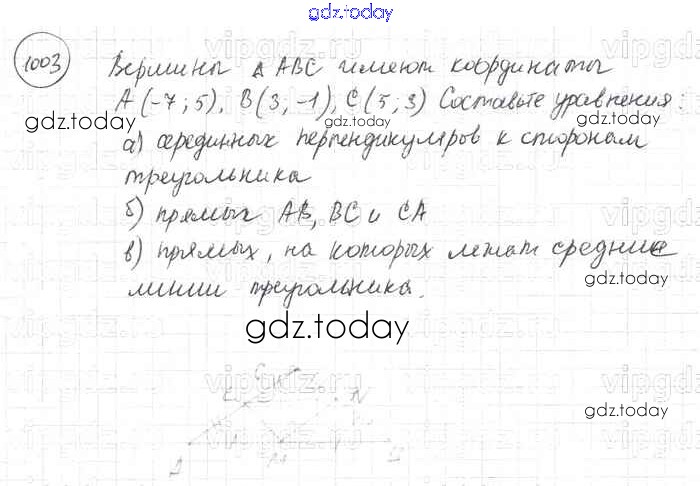 gdz.today
1003 Вершины Δ ABC имеют координаты
A(-7; 5), B(3, -1), C(5; 3) Составьте уравнения:
а) серединных перпендикуляров к сторонам
треугольника
б) прямых AB, BC и CA
в) прямых, на которых лежат средние
линии треугольника.
gdz.today
gdz.today
gdz.today
gdz.today
gdz.today
C
N
A